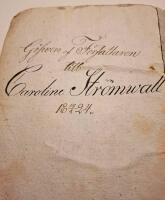 Gifven af Författaren
till
Caroline Strömwall
1824.